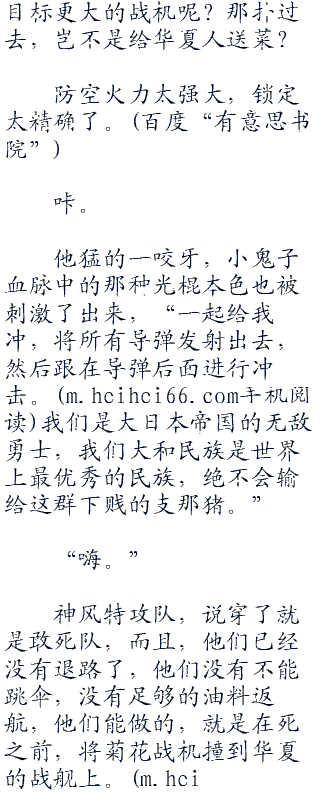 目标更大的战机呢？那扑过
去，岂不是给华夏人送菜？
防空火力太强大，锁定
太精确了。(百度“有意思书
院”)
咔。
他猛的一咬牙，小鬼子
血脉中的那种光棍本色也被
刺激了出来，“一起给我
冲，将所有导弹发射出去，
然后跟在导弹后面进行冲
击。(m.hcihci66.com手机阅
读)我们是大日本帝国的无敌
勇士，我们大和民族是世界
上最优秀的民族，绝不会输
给这群下贱的支那猪。”
“嗨。”
神风特攻队，说穿了就
是敢死队，而且，他们已经
没有退路了，他们没有不能
跳伞，没有足够的油料返
航，他们能做的，就是在死
之前，将菊花战机撞到华夏
的战舰上。(m.hci